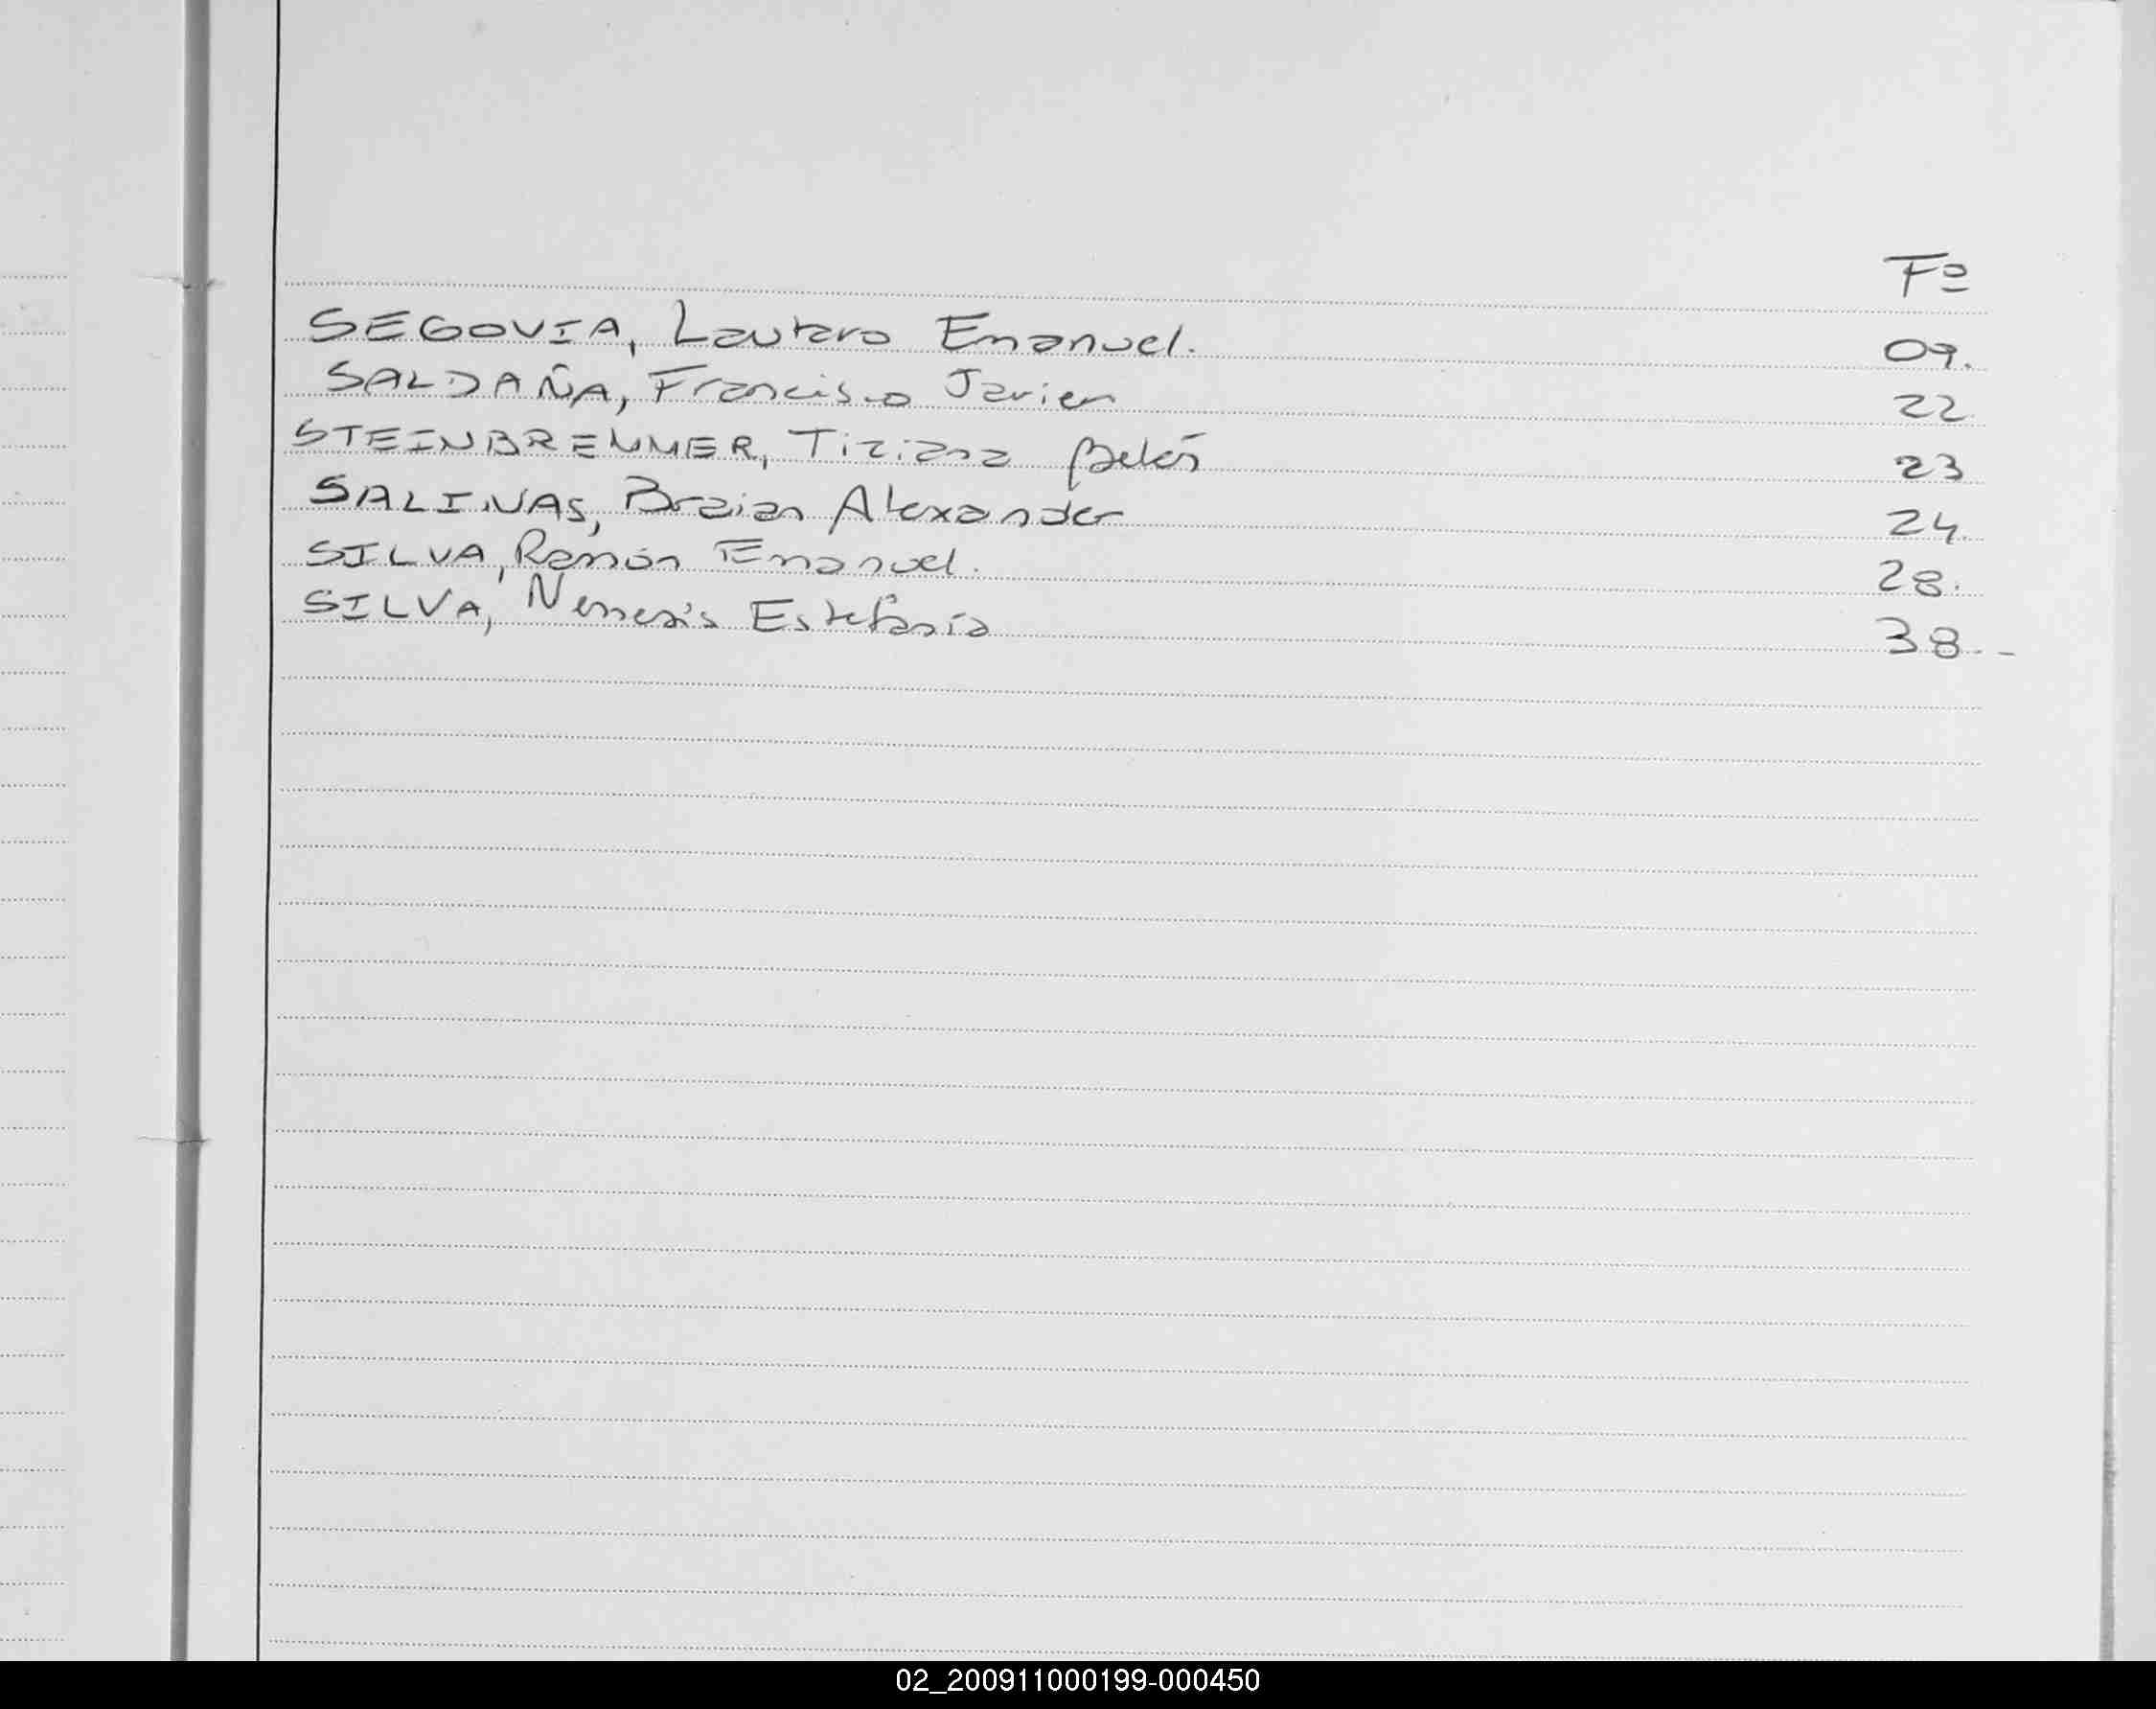 Fº
SEGOVIA, Lautaro Emanuel. 09.
SALDAÑA, Francisco Javier 22
STEINBRENNER, Tiziana Belén 23
SALINAS, Braian Alexander 24.
SILVA, Ramón Emanuel. 28.
SILVA, Nemesis Estefanía 38.-
02_200911000199-000450